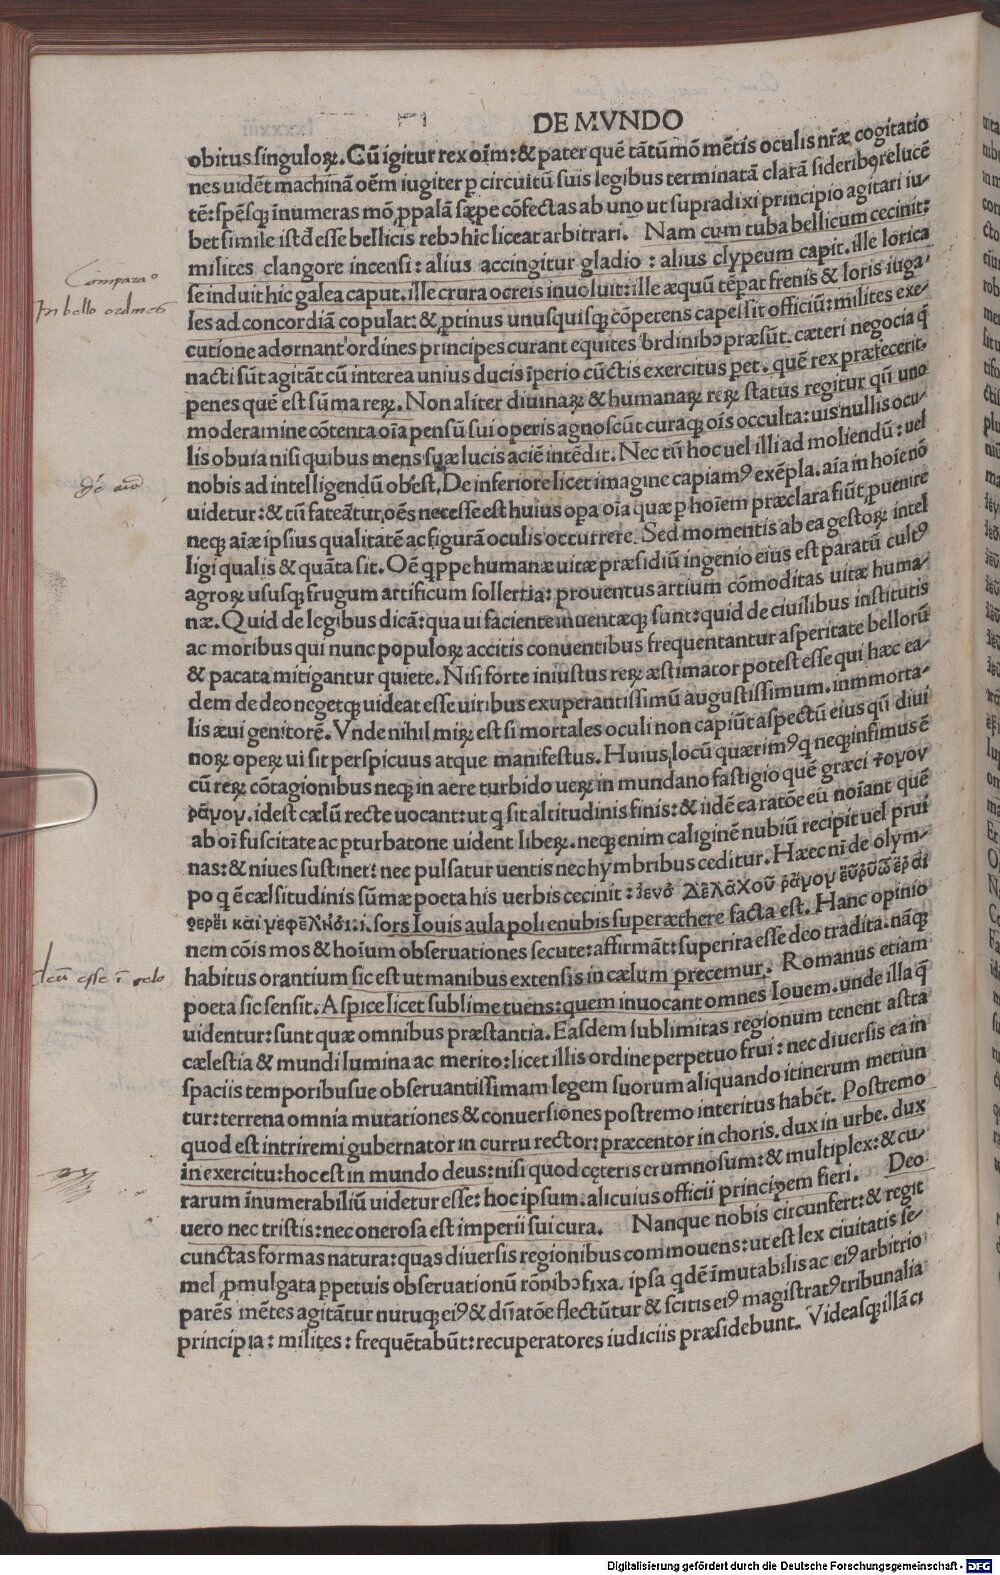 DE MVNDO
obitus singuloꝝ. Cũ igitur rex oĩm: & pater quẽ tãtũmõ mẽtis oculis nr̃æ cogitatio
nes uidẽt machinã oẽm iugiter ꝑ circuitũ suis legibus terminatã clarã sideribꝰ relucẽ
tẽ: spẽsqꝫ ĩnumeras mõ ꝓpalã sæpe cõfectas ab uno ut supradixi principio agitari iu-
bet simile istđ esse bellicis rebꝰ hic liceat arbitrari. Nam cum tuba bellicum cecinit:
milites clangore incensi: alius accingitur gladio: alius clypeum capit. ille lorica
se induit hic galea caput. ille crura ocreis inuoluit: ille æquũ tẽpat frenis & loris iuga-
les ad concordiã copulat: & ꝓtinus unusquisqꝫ cõpetens capessit officiũ: milites exe-
cutione adornant ordines principes curant equites ordinibꝰ præsũt. cæteri negocia q̃
nacti sũt agitãt cũ interea unius ducis ĩperio cũctis exercitus pet. quẽ rex præfecerit.
penes quẽ est sũma reꝝ. Non aliter diuinaꝝ & humanaꝝ reꝝ status regitur qũ uno
moderamine cõtenta oĩa pensũ sui operis agnoscũt curaqꝫ oĩs occulta: uis nullis ocu-
lis obuia nisi quibus mens suæ lucis aciẽ intẽdit. Nec tñ hoc uel illi ad moliendũ: uel
nobis ad intelligendũ obest. De inferiore licet imagine capiamꝰ exẽpla. aĩa in hoĩe nõ
uidetur: & tñ fateãtur oẽs necesse est huius opa oĩa quæ ꝑ hoĩem præclara fiũt ꝓuenire
neqꝫ aĩæ ipsius qualitatẽ ac figurã oculis occurrere. Sed momentis ab ea gestoꝝ intel
ligi qualis & quãta sit. Oẽ qppe humanæ uitæ præsidiũ ingenio eius est paratũ cultꝰ
agroꝝ ususqꝫ frugum artificum sollertia: prouentus artium cõmoditas uitæ huma-
næ. Quid de legibus dicã: qua ui faciente inuentæqꝫ sunt: quid de ciuilibus institutis
ac moribus qui nunc populoꝝ accitis conuentibus frequentantur asperitate belloꝝ
& pacata mitigantur quiete. Nisi forte iniustus reꝝ æstimator potest esse qui hæc ea-
dem de deo negetqꝫ uideat esse uiribus exuperantissimũ augustissimum. inmmorta-
lis æui genitorẽ. Vnde nihil miꝝ est si mortales oculi non capiũt aspectũ eius qũ diui
noꝝ opeꝝ ui sit perspicuus atque manifestus. Huius locũ quærimꝰ q neqꝫ infimus ẽ
cũ reꝝ cõtagionibus neqꝫ in aere turbido ueꝝ in mundano fastigio quẽ græci τοyoν
ράνον. idest cælũ recte uocant: ut q sit altitudinis finis: & iidẽ ea ratõe eũ noĩant quẽ
ab oĩ fuscitate ac ꝑturbatone uident libeꝝ. neqꝫ enim caliginẽ nubiũ recipit uel prui
nas: & niues sustinet: nec pulsatur uentis nec hymbribus ceditur. Hæec nĩ de olym-
po q ẽ cælsitudinis sũmæ poeta his uerbis cecinit:
καὶ νεφέλῃσι: i. sors Iouis aula poli enubis super æthere facta est. Hanc opinio
nem cõis mos & hoĩum obseruationes secute: affirmãt: superira esse deo tradita. nãqꝫ
habitus orantium sic est ut manibus extensis in cælum precemur. Romanus etiam
poeta sic sensit. Aspice licet sublime tuens: quem inuocant omnes Iouem. unde illa q̃
uidentur: sunt quæ omnibus præstantia. Easdem sublimitas regionum tenent astra
cælestia & mundi lumina ac merito: licet illis ordine perpetuo frui: nec diuersis ea in
spaciis temporibusue obseruantissimam legem suorum aliquando itinerum metiun
tur: terrena omnia mutationes & conuersiones postremo interitus habẽt. Postremo
quod est intriremi gubernator in curru rector: præcentor in choris. dux in urbe. dux
in exercitu: hoc est in mundo deus: nisi quod cęteris erumnosum: & multiplex: & cu-
rarum ĩnumerabiliũ uidetur esse: hoc ipsum. alicuius officii principem fieri. Deo
uero nec tristis: nec onerosa est imperii sui cura. Nanque nobis circunfert: & regit
cunctas formas natura: quas diuersis regionibus commouens: ut est lex ciuitatis se-
mel ꝓmulgata ꝑpetuis obseruationũ rõnibꝰ fixa. ipsa qdẽ ĩmutabilis ac eiꝰ arbitrio
parẽs mẽtes agitãtur nutuqꝫ eiꝰ & dñatõe flectũtur & scitis eiꝰ magistratꝰ tribunalia
principia: milites: frequẽtabũt: recuperatores iudiciis præsidebunt. Videasqꝫ illã ci
Compara°
In bello ordines
De aĩa
deũ esse ĩ celo
Digitalisierung gefördert durch die Deutsche Forschungsgemeinschaft - DFG